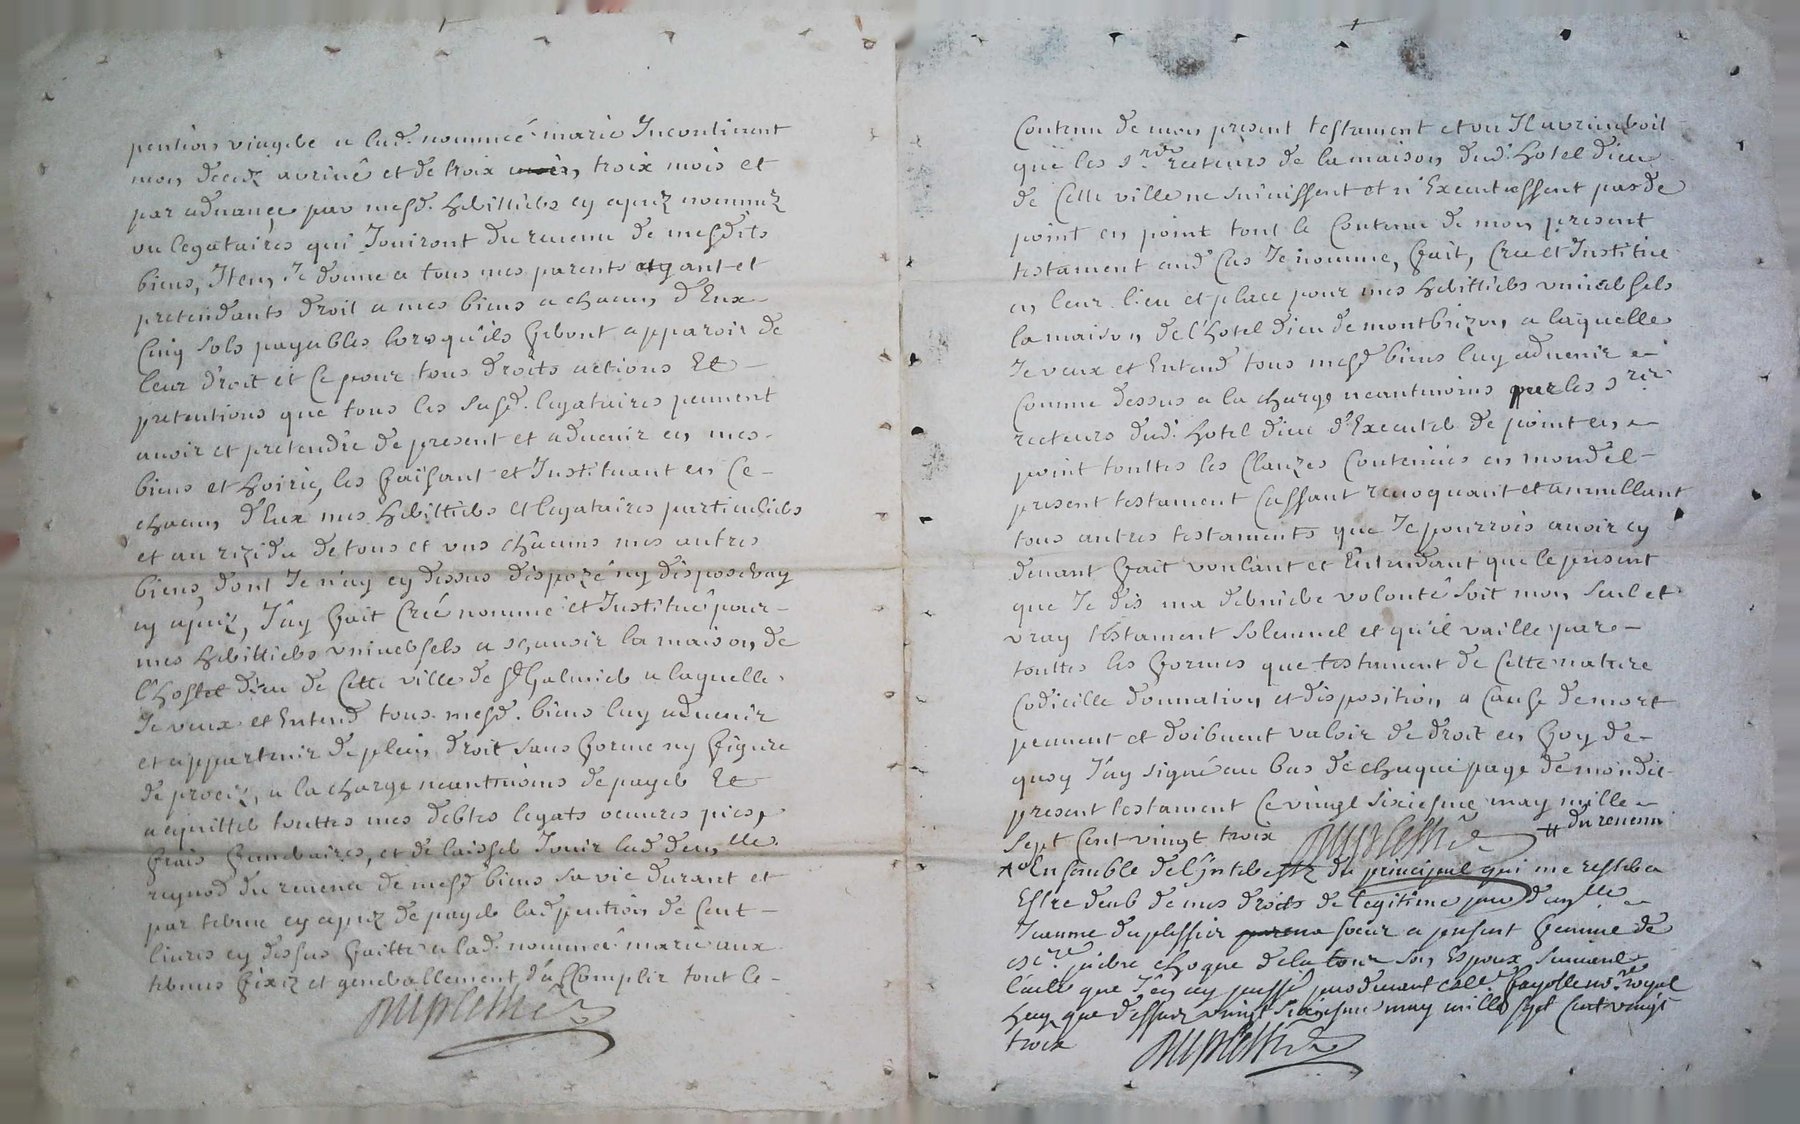 pention viagere a lad. nommeé marie Incontinent
mon decedz avrivé et de troix mois, troix mois et
par advance par mesd. heritiers cy apriz nommez
ou legataires qui Jouiront du revenu de mesdits
biens, Item Je donne a tous mes parents ayant et
pretendants droit a mes biens a chacun d'Eux
Cinq sols payables lorsqu'ils feront apparoir de
leur droit et Ce pour tous droits actions Et
pretentions que tous les susd. legataires peuvent
avoir et pretendre de present et advenir en mes
biens et hoirie, les faisant et Instituant en Ce
chacun d'Eux mes heritiers et legataires particuliers
et au rezidu de tous et uns chacuns mes autres
biens dont Je n'ay cy dessus dispozé ny disposeray
cy apriz, J'ay fait Créé nommé et Institué pour
mes heritiers universels a sçavoir la maison de
l'hostel dieu de Cette ville de St Galmier a laquelle
Je veux et Entend tous mesd. biens luy advenir
et appartenir de plein droit sans forme ny figure
de procez, a la charge neantmoins de payer Et
acquitter touttes mes debtes legats oeuvres pies,
frais funeraires, et de laisser Jouir lad. demlle
reynod du revenu de mesd. biens sa vie durant et
par terme cy apriz de payer lad. pention de Cent
livres cy dessus faitte a lad. nommeé marie aux
termes fixez et generallement d'acComplir tout le
duplessie
Contenu de mon present testament et ou Il avriveroit
que les srs recteurs de la maison dud. hotel dieu
de Cette ville ne suivissent et n'Executassent pas de
point en point tout le Contenu de mon present
testament aud. Cas Je nomme, fait, Crée et Institue
en leur lieu et place pour mes heritiers universels
la maison de l'hotel dieu de montbrizon a laquelle
Je veux et Entend tous mesd. biens luy advenir
Comme dessus a la charge neantmoins par les srs
recteurs dud. hotel dieu d'Executer de point en
point touttes les Clauzes Contenües en mondit
present testament Cassant revoquant et annullant
tous autres testaments que Je pourrois avoir cy
devant fait voulant et Entendant que le present
que Je dis ma derniere volonté soit mon seul et
vray testament solennel et qu'il vaille par
touttes les formes que testament de Cette nature
Codicille donnation et disposition a Cause de mort
peuvent et doibvent valoir de droit en foy de
quoy J'ay signé au bas de chaque page de mondit
present testament Ce vingt sixiesme may mille
sept Cent vingt troix duplessie # du revenu
Ensemble de l'jnterestz du principal qui me restera
Estre deub de mes droits de legitime par demlle
Jeanne duplessier ma soeur a present femme de
choque de la tour son Espoux suivant
l'acte que J'en ay passé pardevant fayolle no.re royal
que dessus vingt sixiesme may mille sept Cent vingt
troix duplessie